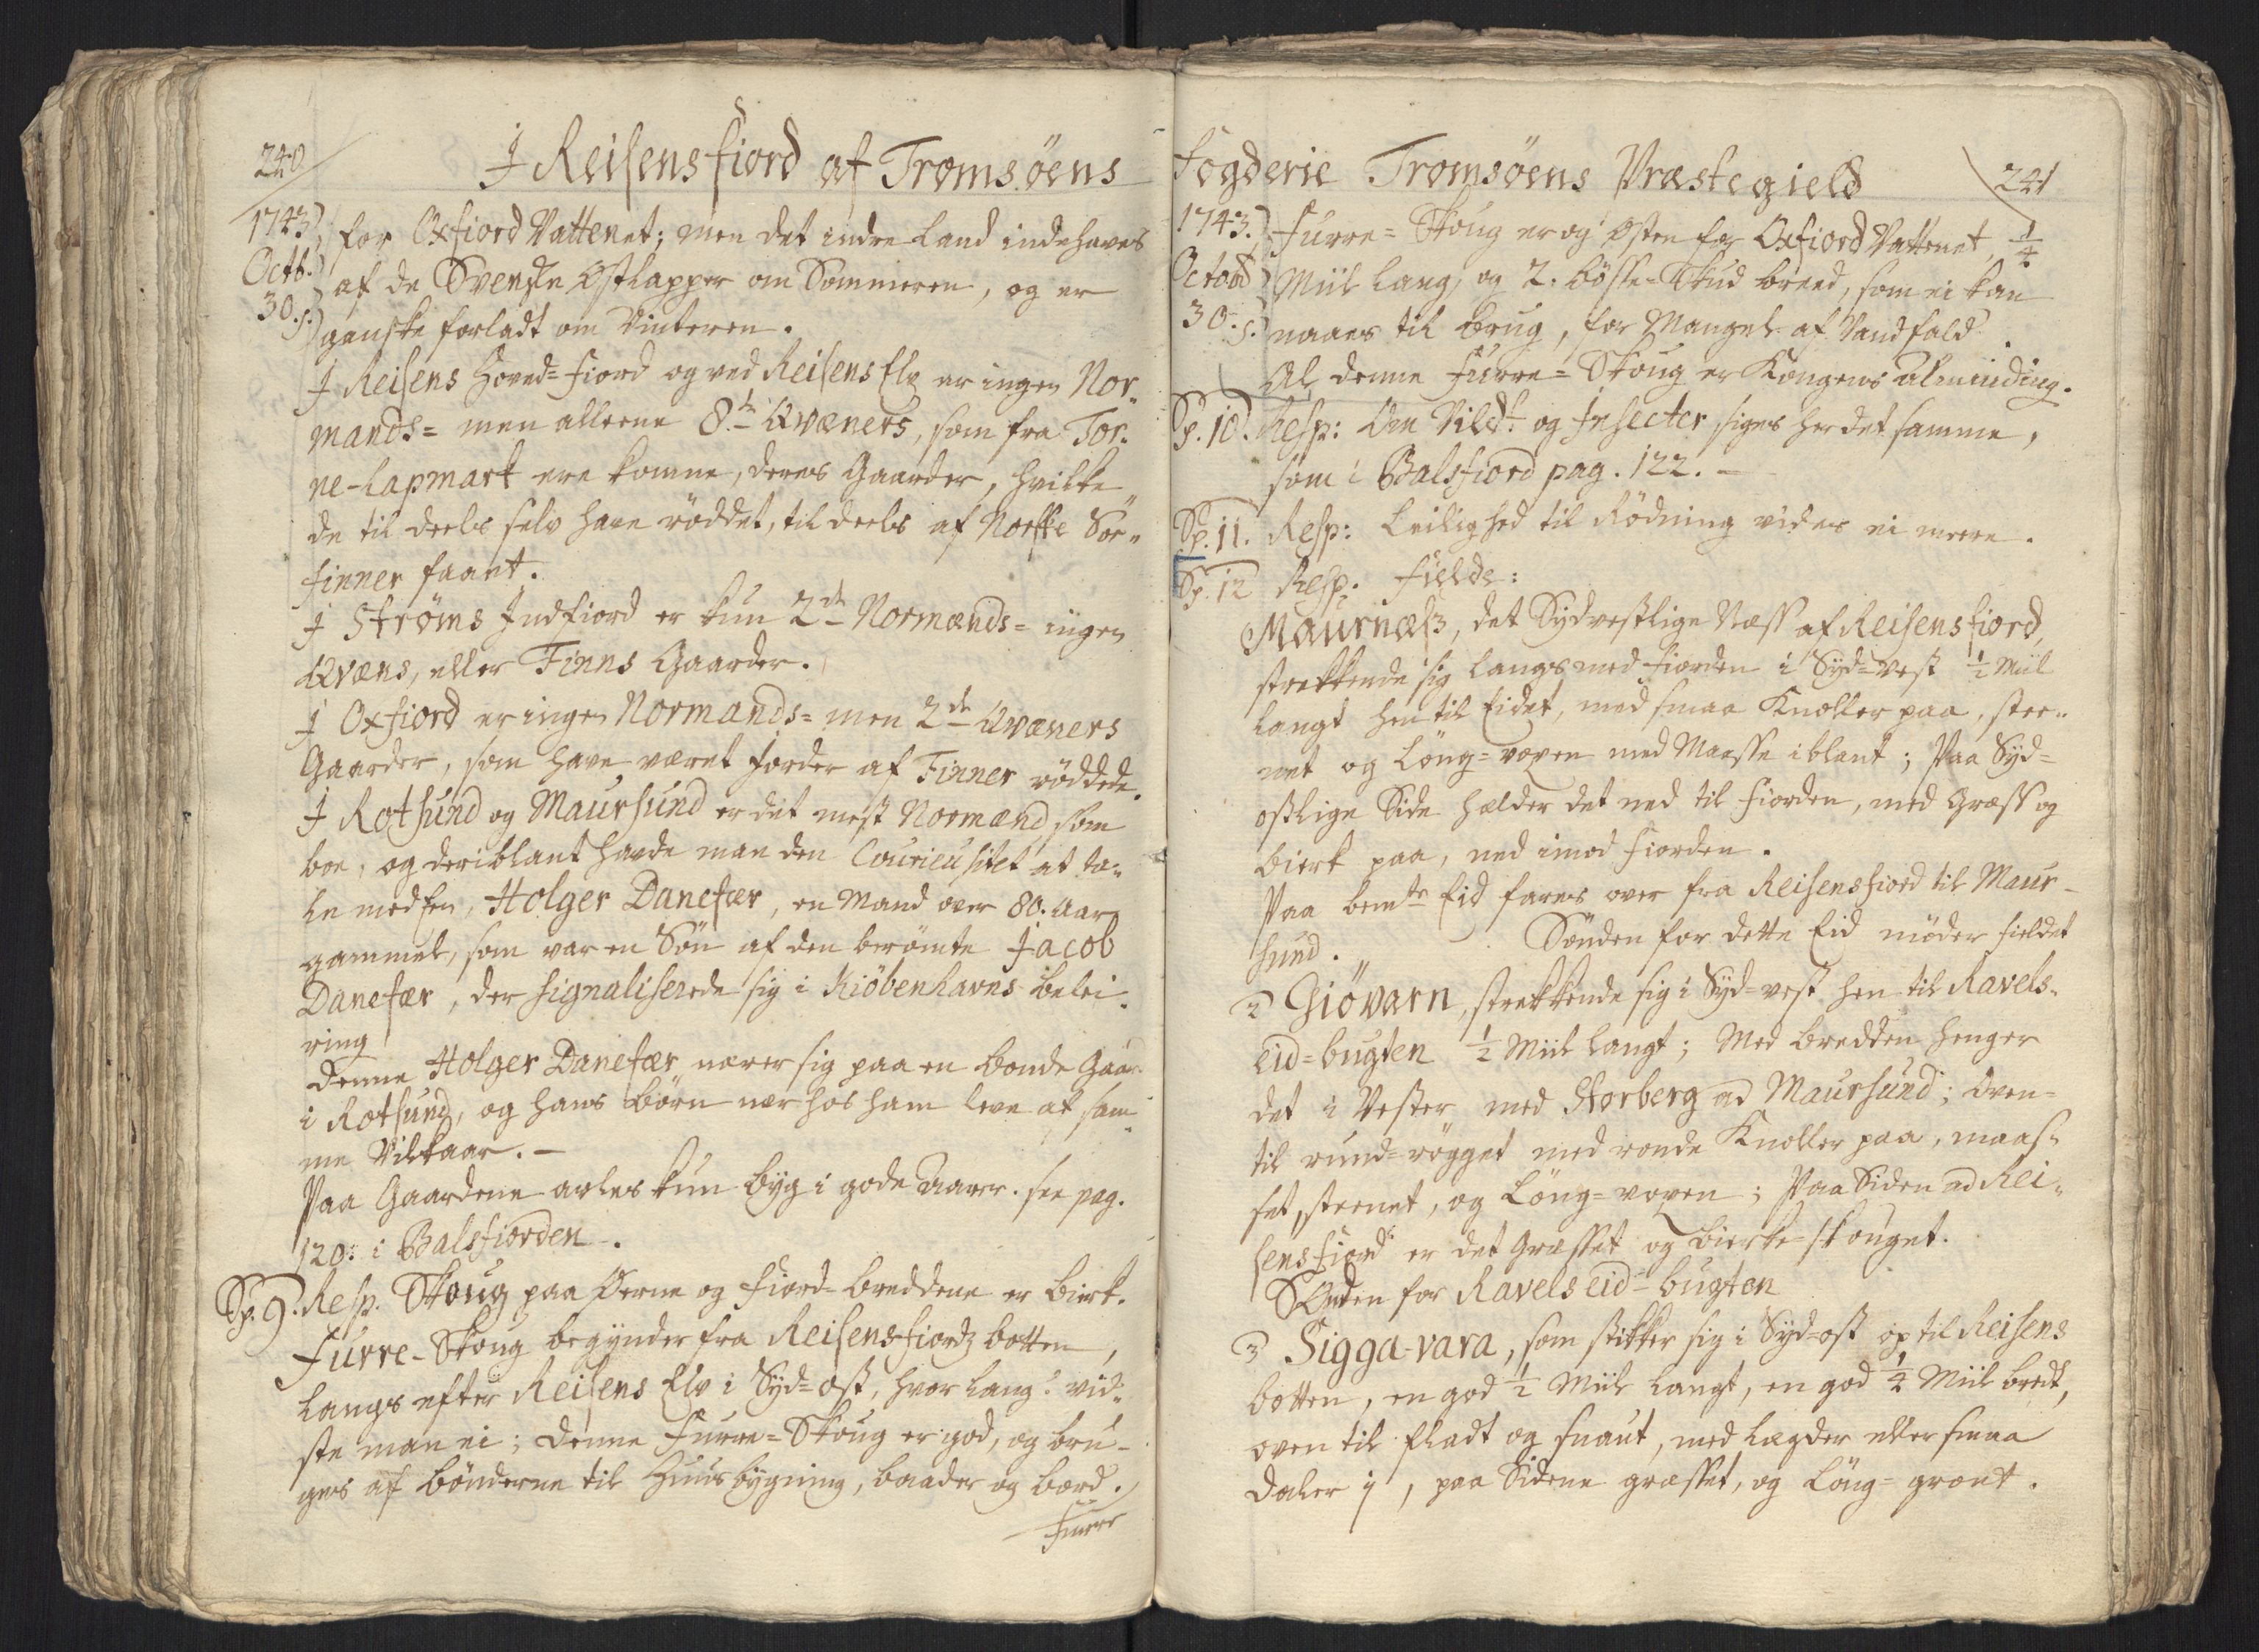 240
I Reisensfiord af Tromsöens
1743.
Octb.
30. s.
for Oxfiord Vattenet; men det indre Land indehaves
af de Svenske Østlapper om Sommeren, og er
ganske forladt om Vinteren.
I Reisens Hoved-Fiord og ved Reisens Elv er ingen Nor-
mands= men alleene 8.te Qvæners, som fra Tor-
ne-Lapmark ere komne, deres Gaarder, hvilke
de til deels selv have röddet, til deels af Norske Sör-
finner faaet.
I Ströms Indfiord er kun 2de Normænds= ingen
Qvæns, eller Finns Gaarder.
I Oxfiord er ingen Normands= men 2de Qvæners
Gaarder, som have været forder af Finner röddede.
I Rotsund og Maursund er det mest Normænd som
boe, og deriblant havde man den Courieusitet at ta-
le med En, Holger Danefær, en Mand over 80. Aar
gammel, som var en Sön af den berömte Jacob
Danefær, der signaliserede sig i Kiöbenhavns Belei-
ring
Denne Holger Danefær nærer sig paa en Bonde Gaar
i Rotsund, og hans Börn nær hos ham leve af sam-
me Vilkaar. —
Paa Gaardene avles kun Byg i gode Aarer. see pag.
120. i Balsfiorden.
Sp. 9. Resp. Skoug paa Öerne og Fiord-Breddene er Birk.
Furre-Skoug begynder fra Reisensfiordz botten,
langs efter Reisens Elv i Syd=Ost, hvor langt vid-
ste man ei; Denne Furre=Skoug er god, og bru-
ges af Bönderne til Huusbygning, baader og bord.
Furre
Fogderie Tromsöens Præstegield
241
1743.
Octobr
30. s.
Furre=Skoug er og Østen for Oxfiord Vattenet, 1/4
Miil lang, og 2. bösse=Skud breed, som ei kan
naaes til brug, for Mangel af Vandfald.
Al denne Furre=Skoug er Kongens Alminding.
Sp. 10. Resp: Om Vildt og Insecter siges her det samme,
som i Balsfiord pag. 122. —
Sp. 11. Resp: Leilighed til Rödning vides ei meere.
Sp. 12 Resp. Fielde:
Maurnæss, det Sydvestlige Næss af Reisensfiord,
strekkende sig langs med Fiorden i Syd=vest 1/2 Miil
langt hen til Eidet, med smaa Knoller paa, stee-
net og Löng=voxen med Maasse iblant; Paa Syd=
ostlige Side helder det ned til Fiorden, med Græss og
birk paa, ned imod Fiorden.
Paa bemte Eid fares over fra Reisensfiord til Maur-
sund. Sönden for dette Eid möder Fieldet
2 Giövarn, strekkende sig i Syd=vest hen til Ravels-
eid=bugten 1/2 Miil langt; Med bredden henger
det i Vester med Storberg ad Maursund; Oven=
til rund=rögget med ronde Knoller paa, maas-
set, steenet, og Löng=voxen; Paa Siden ad Rei-
sensfiord er det Græsset og birke-skouget.
Sönden for Ravelseid=bugten
3 Sigga-vara, som stikker sig i Syd=ost op til Reisens
botten, en god 1/2 Miil langt, en god 1/4 Miil bredt,
oven til fladt og snaut, med Lægder eller smaa
daler i, paa Siderne græsset, og Löng=groet.